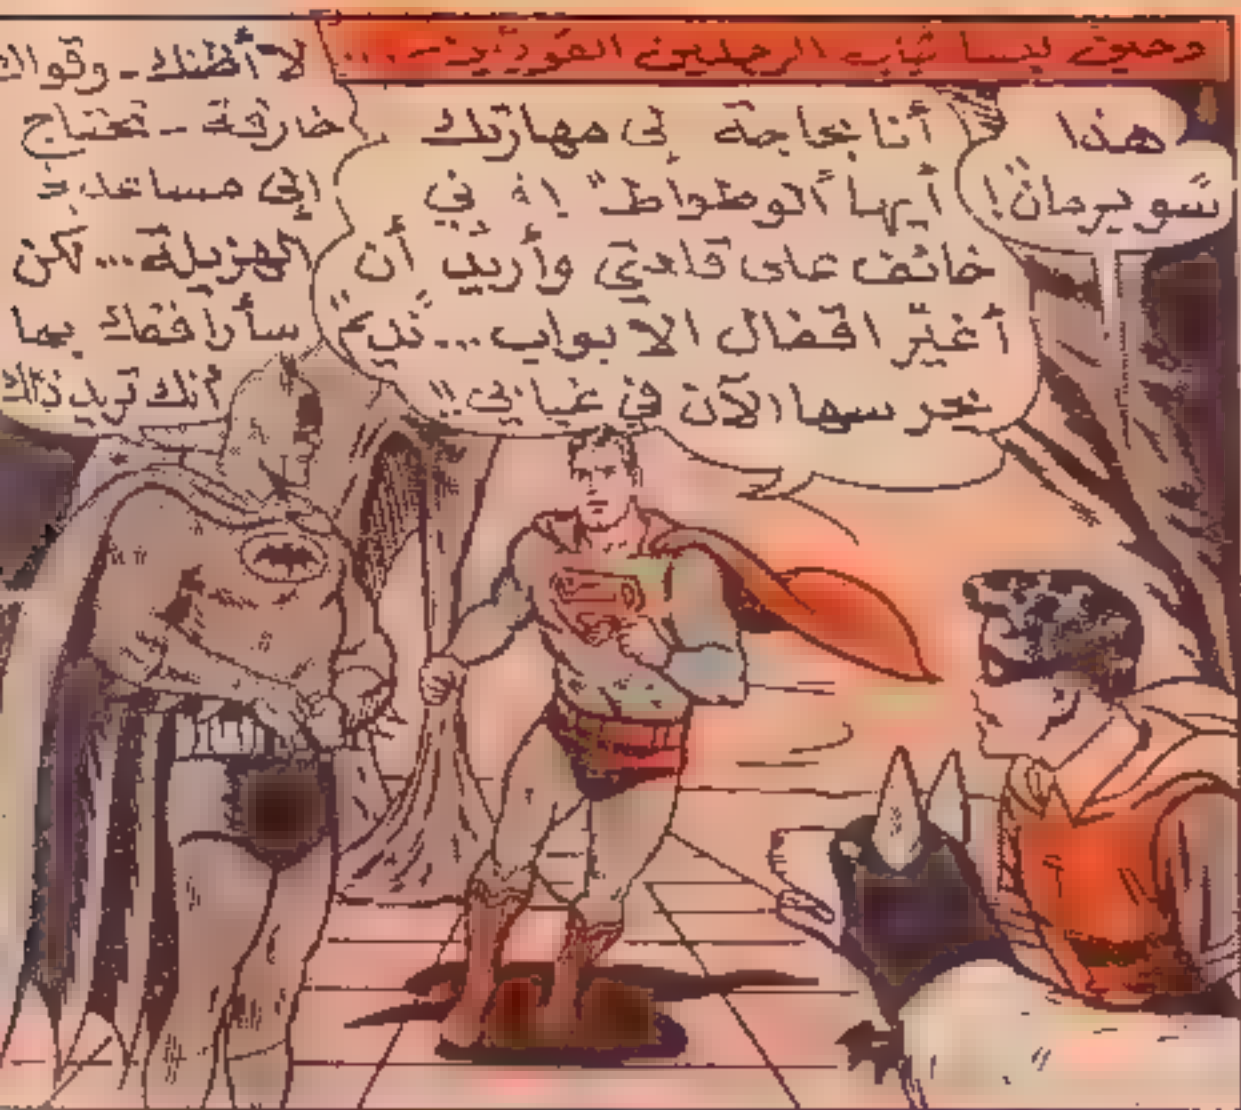 وحين لبسا ثياب الرجلين القويّين - ...
هذا
"سوبرمان"!
أنا بحاجة لى مهارتك
أيها "الوطواط"! في
خائف على قلعتي وأريد أن
أغيّر اقفال الابواب...
نحرسها الآن في غيابي!!
لا أظنك - وقواك
خارقة - تحتاج
إلى مساعدتي
الهزيلة... لكن
سأرافقك بما
أنك تريد ذلك